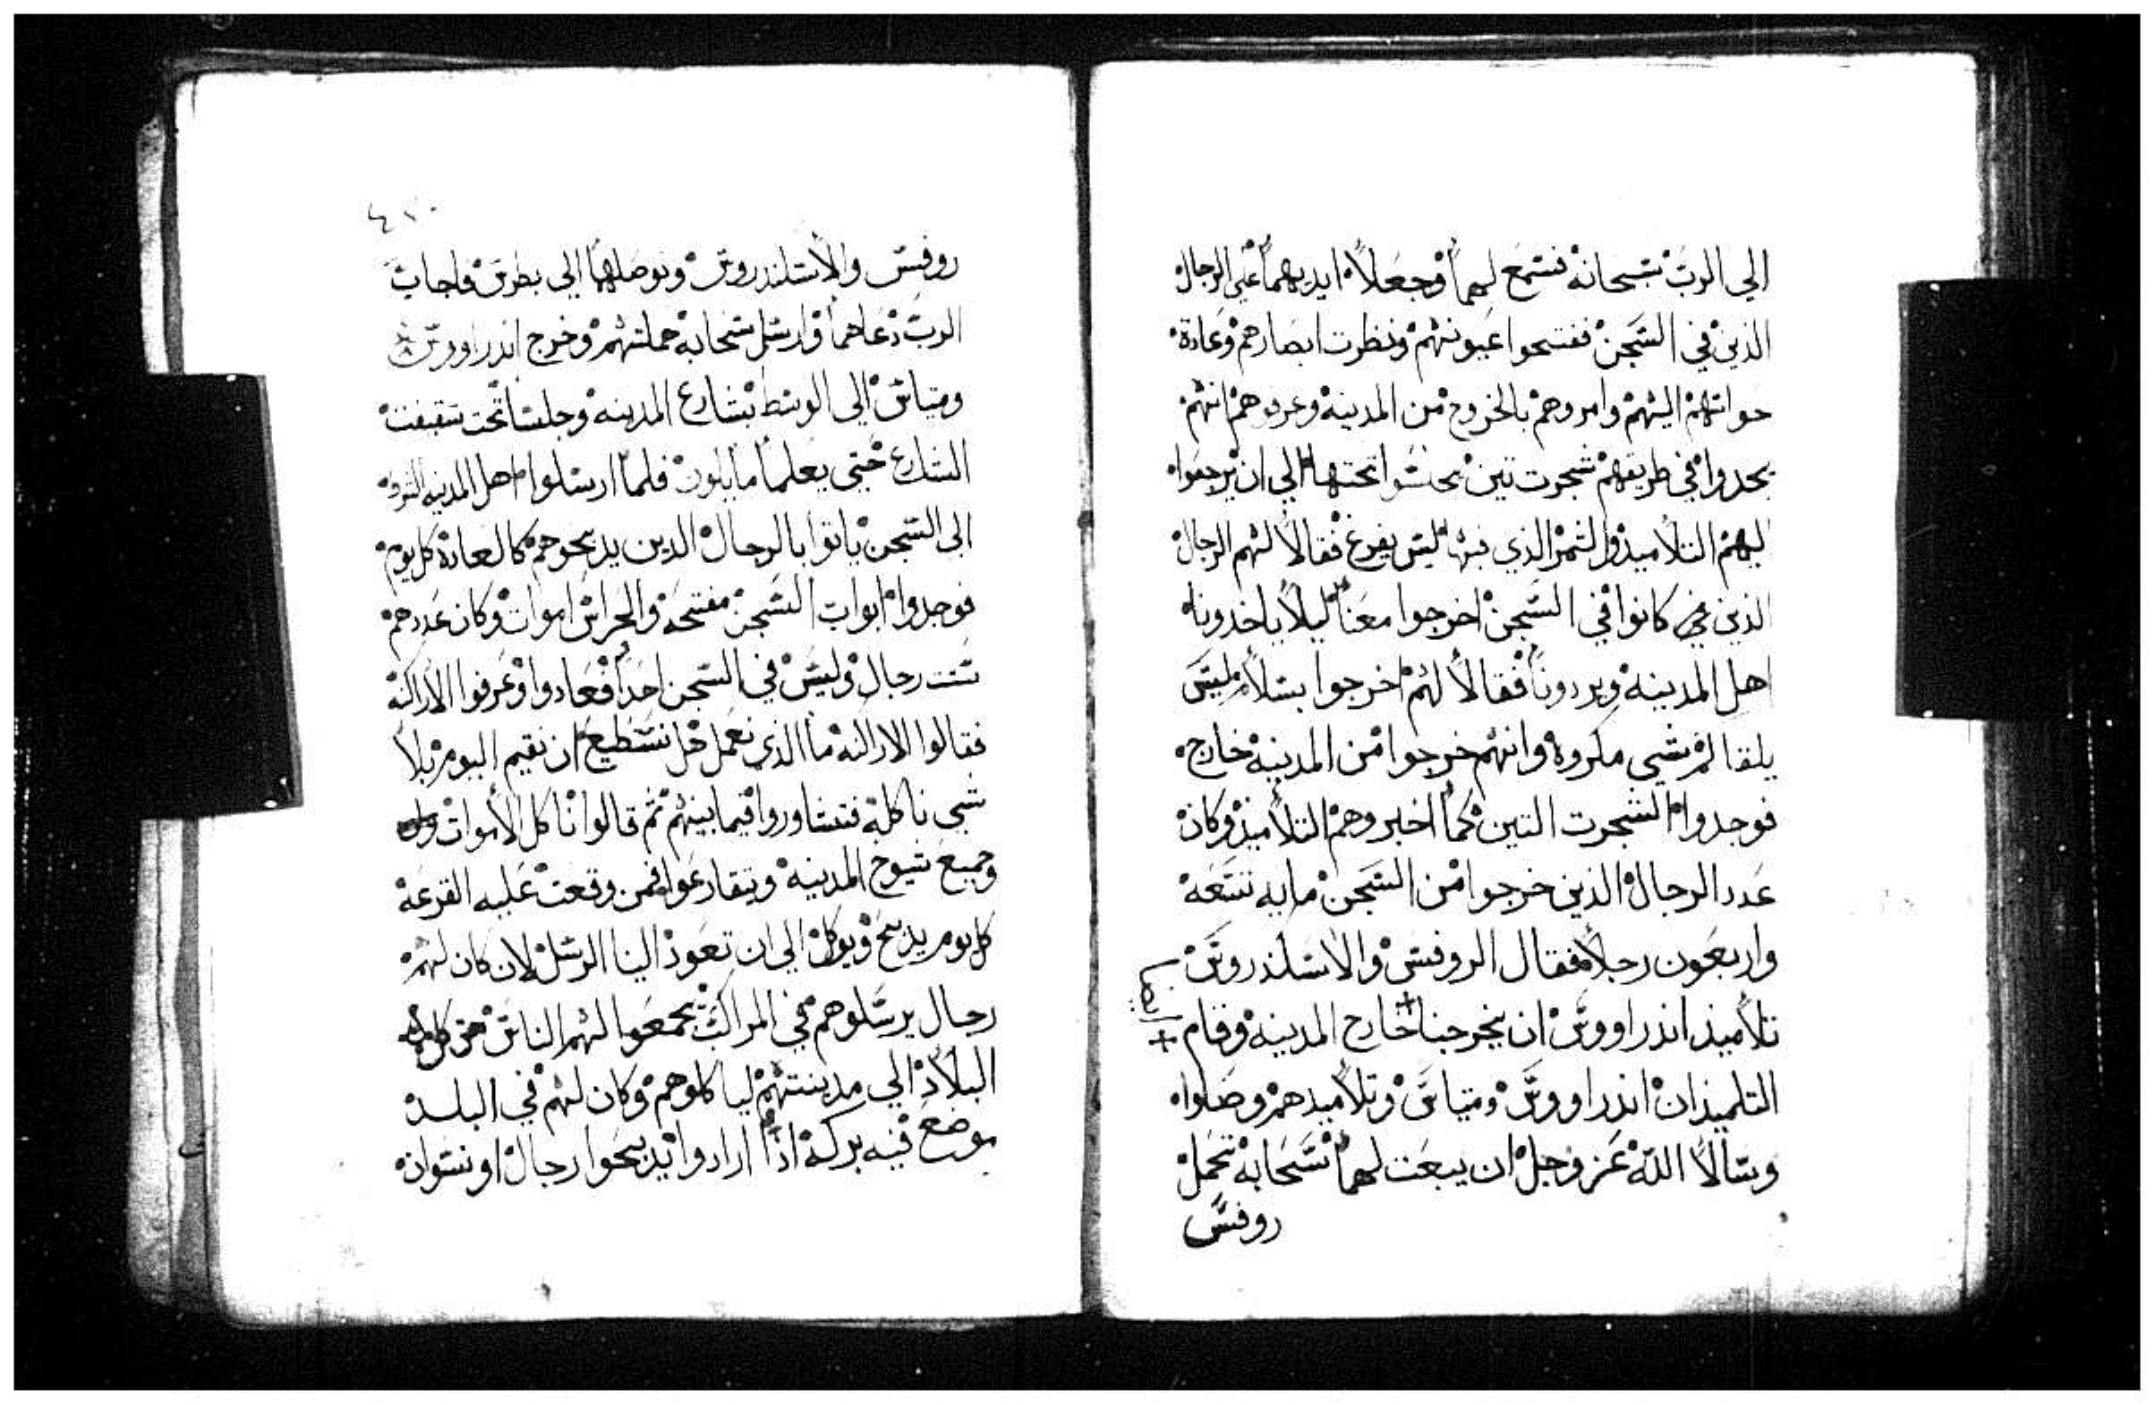 الي الرب سبحانه فسمع لهما وجعلا ايديهما علي الرجال
الذين في السجن ففتحوا عيونهم ونظرت ابصارهم وعادة
حواتهم اليهم وامروهم بالخروج من المدينة وعرفوهم انهم
يجدوا في طريقهم شجرت تين يجلسوا تحتها الي ان يرجعوا
ليهم التلاميذ والثمر الذي فيها ليس يفرغ فقالا لهم الرجال
الذين كانوا في السجن اخرجوا معنا ليلا ياخدونا
اهل المدينه ويردونا فقالا لهم اخرجوا بسلام ليس
يلقاكم شي مكروه وانهم خرجوا من المدينه خارج
فوجدوا الشجرت التين كما اخبروهم التلاميذ وكان
عدد الرجال الذين خرجوا من السجن مايه تسعه
واربعون رجلا فقال الروفس والاسكندروس
تلاميذ اندراووس ان يخرجنا خارج المدينه وقام
التلميذان اندراووس ومتياس وتلاميدهم وصلوا
وسالا الله عز وجل ان يبعت لهما سحابه تحمل
روفس
٤٧٠
روفس والاسكندروس وتوصلهما الي بطرس فاجاب
الرب دعاهما وارسل سحابه حملتهم وخرج اندراوس
ومتياس الي الوسط بشارع المدينه وجلسا تحت سقيفت
الشارع حتي يعلما ما يكون فلما ارسلوا اهل المدينه
الي السجن ياتوا بالرجال الدين يدبحوهم كالعادة كل يوم
فوجدوا ابواب السجن مفتحه والحراس اموات وكان عددهم
ستت رجال وليس في السجن احدا فعادوا وعرفوا الاراكنه
فقالوا الاراكنه ما الذي نعمل هل نستطيع ان نقيم اليوم بلا
شي ناكله فتشاوروا فيما بينهم ثم قالوا ناكل الاموات
وجميع شيوخ المدينه ويتقارعوا فمن وقعت عليه القرعه
كل يوم يدبح ويوكل الي ان تعود الينا الرسل لان كان لهم
رجال يرسلوهم في المراكب يجمعوا لهم الناس من كل
البلاد الي مدينتهم لياكلوهم وكان لهم في البلد
موضع فيه بركة اذا ارادوا يدبحوا رجال او نسوان